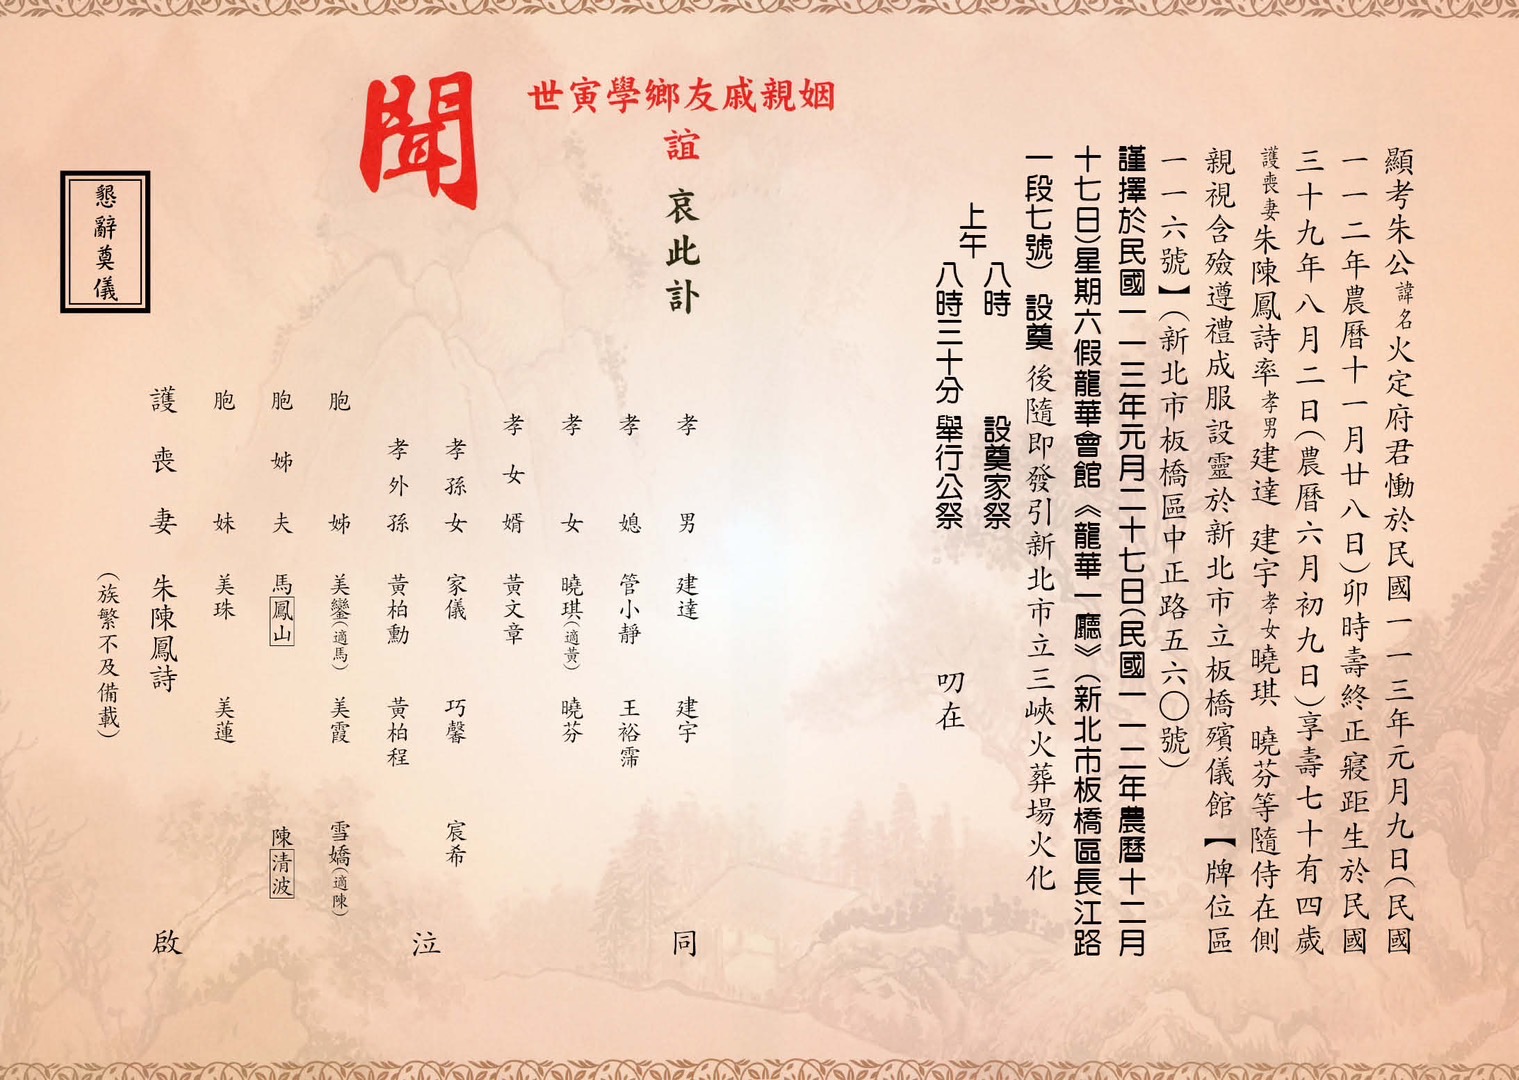 顯考朱公諱名火定府君慟於民國一一三年元月九日(民國
一一二年農曆十一月廿八日)卯時壽終正寢距生於民國
三十九年八月二日(農曆六月初九日)享壽七十有四歲
護喪妻朱陳鳳詩率孝男建達 建宇孝女曉琪 曉芬等隨侍在側
親視含殮遵禮成服設靈於新北市立板橋殯儀館【牌位區
一一六號】(新北市板橋區中正路五六〇號)
謹擇於民國一一三年元月二十七日(民國一一二年農曆十二月
十七日)星期六假龍華會館《龍華一廳》(新北市板橋區長江路
一段七號) 設奠 後隨即發引新北市立三峽火葬場火化
八時 設奠家祭
上午
八時三十分 舉行公祭 叨在
姻親戚友鄉學寅世
誼 哀此訃
聞
孝男 建達 建宇 同
孝媳 管小靜 王裕霈
孝女 曉琪(適黃) 曉芬
孝女婿 黃文章
孝孫女 家儀 巧馨 宸希
孝外孫 黃柏勳 黃柏程 泣
胞姊 美鑾(適馬) 美霞 雪嬌(適陳)
胞姊夫 馬鳳山 陳清波
胞妹 美珠 美蓮
護喪妻 朱陳鳳詩 啟
(族繁不及備載)
懇辭奠儀